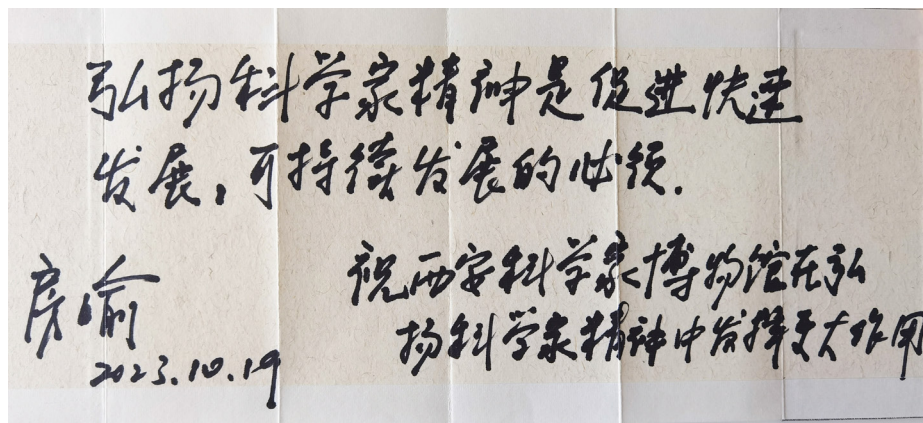 弘扬科学家精神是促进快速
发展，可持续发展的必须.
祝西安科学家博物馆在弘
扬科学家精神中发挥更大作用
房喻
2023.10.19